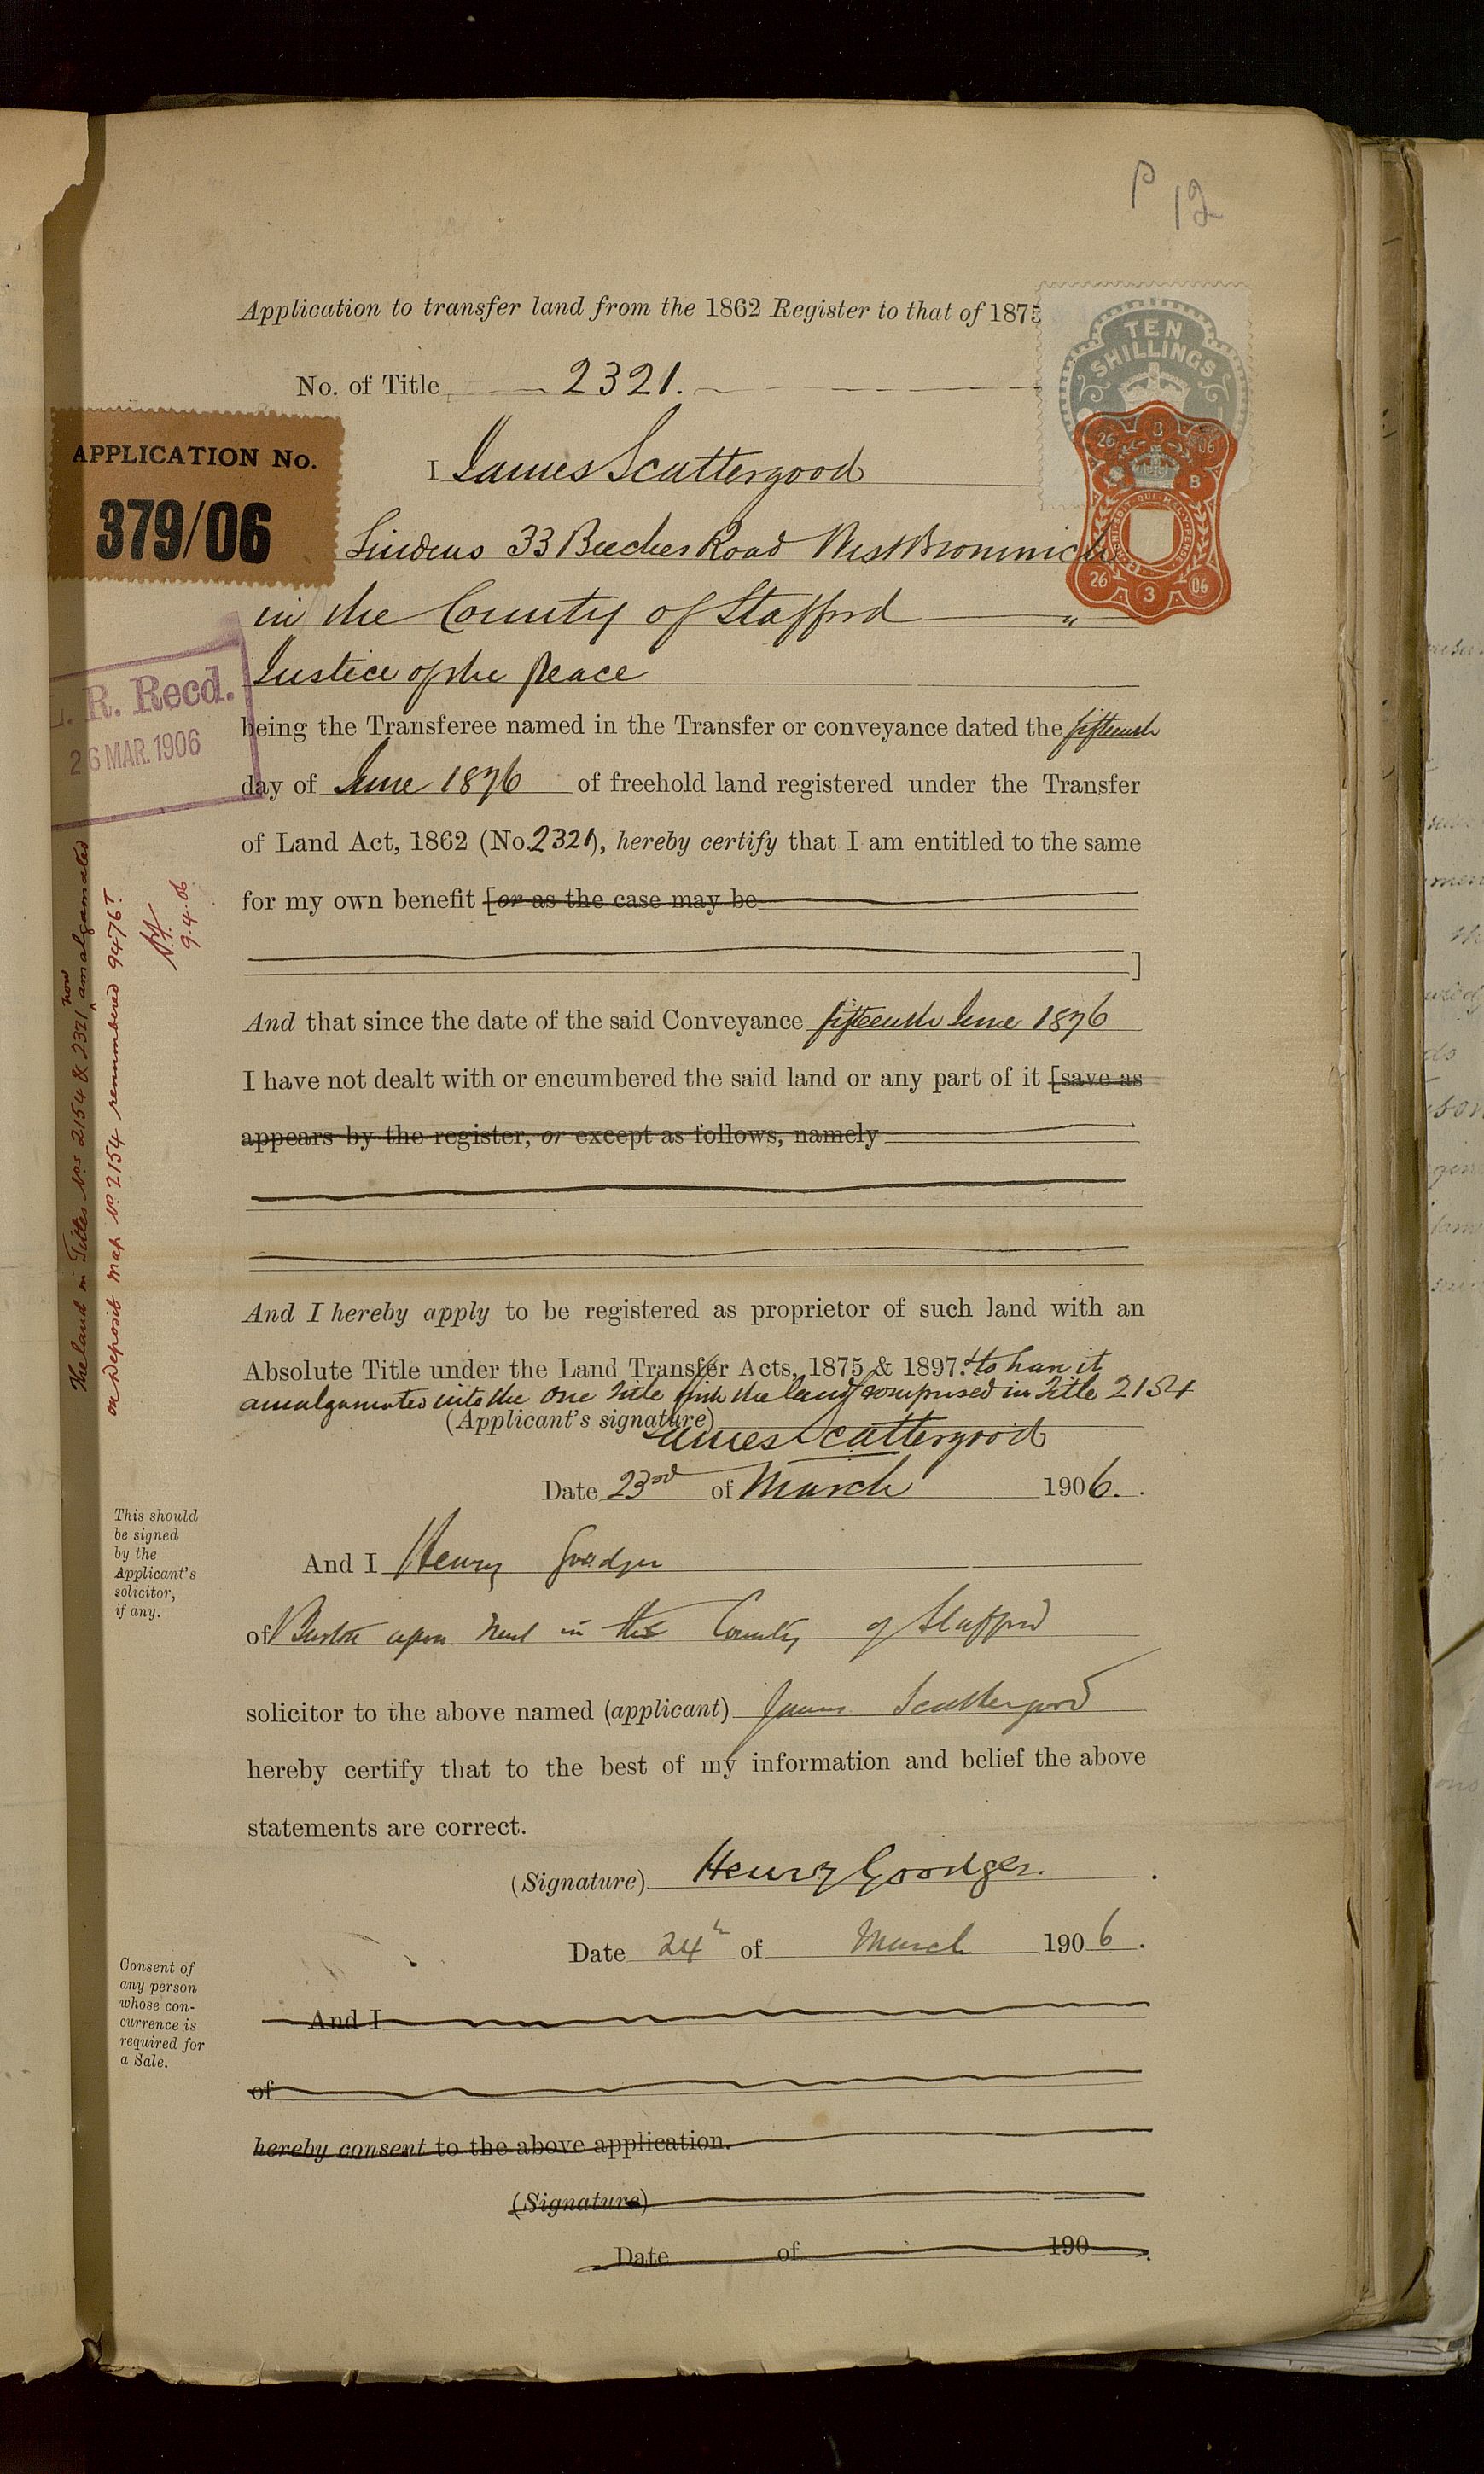 P 12
Application to transfer land from the 1862 Register to that of 1875
TEN
SHILLINGS
No. of Title 2321.
APPLICATION No.
379/06
I James Scattergood
26 3 06
B
HONI·SOIT·QUI·MAL·Y·PENSE
26 3 06
Lindens 33 Beeches Road West Bromwich
in the County of Stafford "
Justice of the Peace
L. R. Recd.
26 MAR. 1906
being the Transferee named in the Transfer or conveyance dated the fifteenth
day of June 1876 of freehold land registered under the Transfer
of Land Act, 1862 (No. 2321), hereby certify that I am entitled to the same
for my own benefit [or as the case may be
]
The land in Titles Nos 2154 & 2321 now amalgamated
on deposit map No. 2154 renumbered 9476T.
9.4.06
And that since the date of the said Conveyance fifteenth June 1876
I have not dealt with or encumbered the said land or any part of it [save as
appears by the register, or except as follows, namely
And I hereby apply to be registered as proprietor of such land with an
Absolute Title under the Land Transfer Acts, 1875 & 1897. & to have it
amalgamated into the one title with the land comprised in Title 2154
(Applicant's signature) James Scattergood
Date 23rd of March 1906.
This should
be signed
by the
Applicant's
solicitor,
if any.
And I Henry Goodger
of Burton upon Trent in the County of Stafford
solicitor to the above named (applicant) James Scattergood
hereby certify that to the best of my information and belief the above
statements are correct.
(Signature) Henry Goodger.
Date 24th of March 1906.
Consent of
any person
whose con-
currence is
required for
a Sale.
And I
of
hereby consent to the above application.
(Signature)
Date of 190